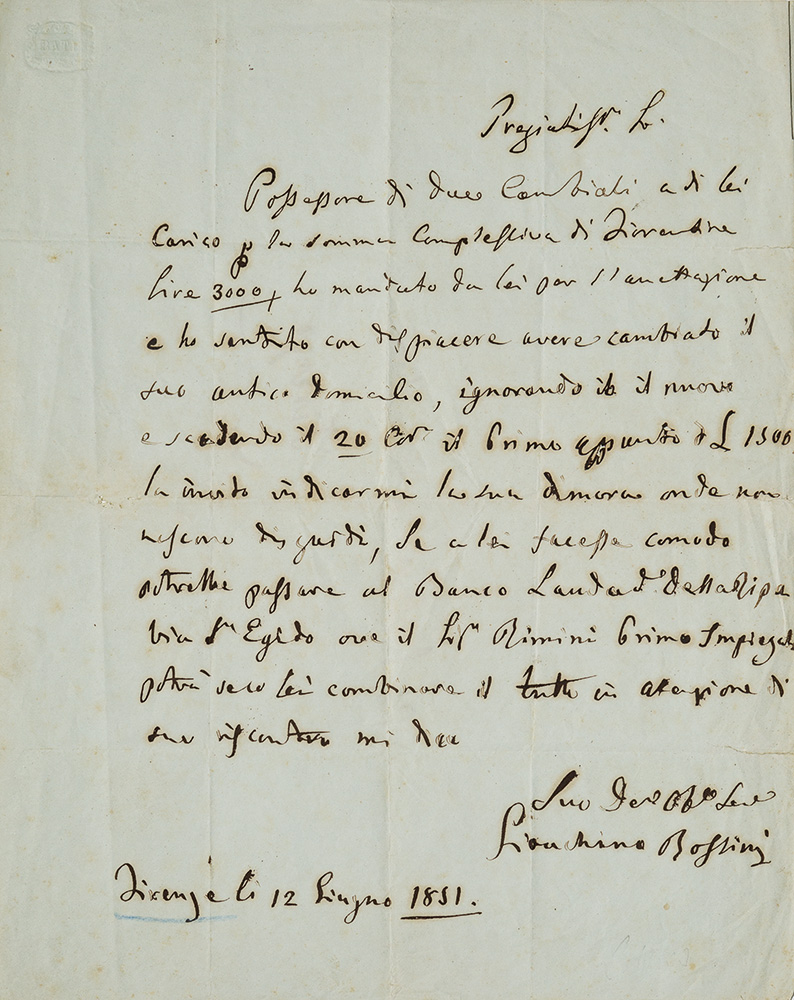 Pregiatiss.r S.
Possessore di due Cambiali a di lei
Carico p la somma Complessiva di Fiorentine
Lire 3000, ho mandato da lei per l'accettazione
e ho sentito con dispiacere avere cambiato il
suo antico domicilio, ignorando io il nuovo
e scadendo il 20 Cor.e il primo appunto di £ 1500
la invito indicarmi la sua dimora onde non
nascono disguidi, Se a lei facesse comodo
potrebbe passare al Banco Laudad.o Della Ripa
Via S. Egido ove il Sig.r Rimini Primo Impiegato
potrà seco lei combinare il tutto in attenzione di
suo riscontro mi dico
Suo Dev.o Obb.o Serv.e
Gioachino Rossini
Firenze li 12 Giugno 1851.